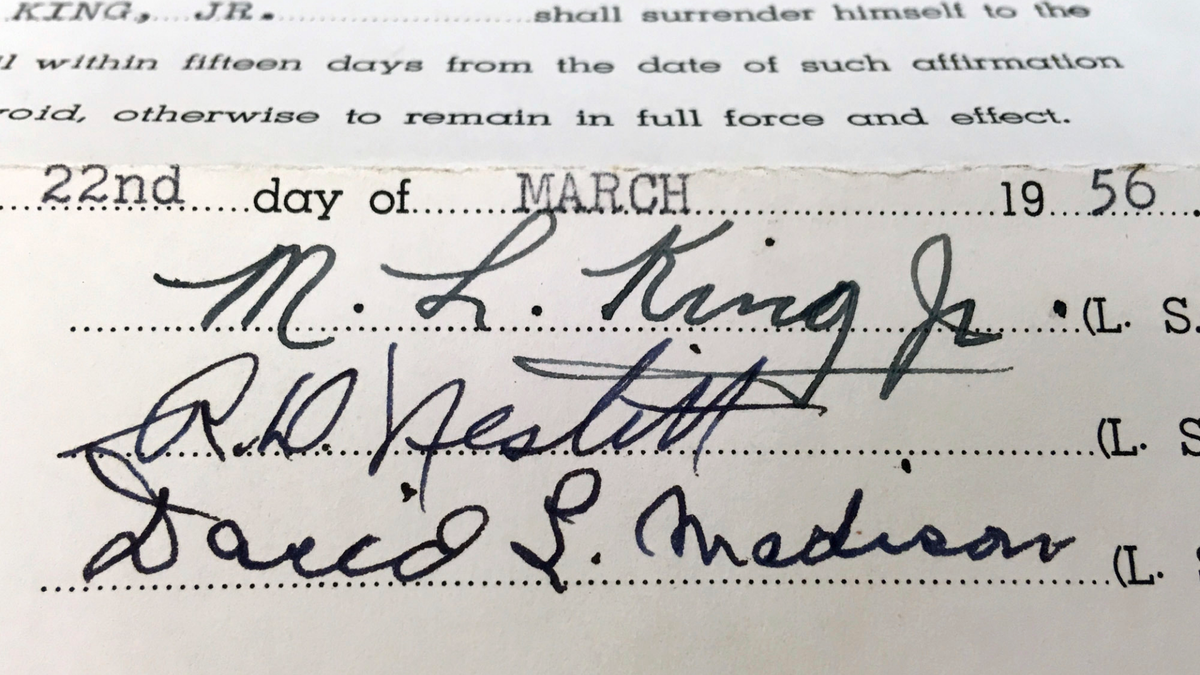 KING, JR. shall surrender himself to the
within fifteen days from the date of such affirmation
otherwise to remain in full force and effect.
22nd day of MARCH 19 56
M. L. King Jr. (L. S.
R. D. Nesbitt (L. S
David L. Madison (L. S